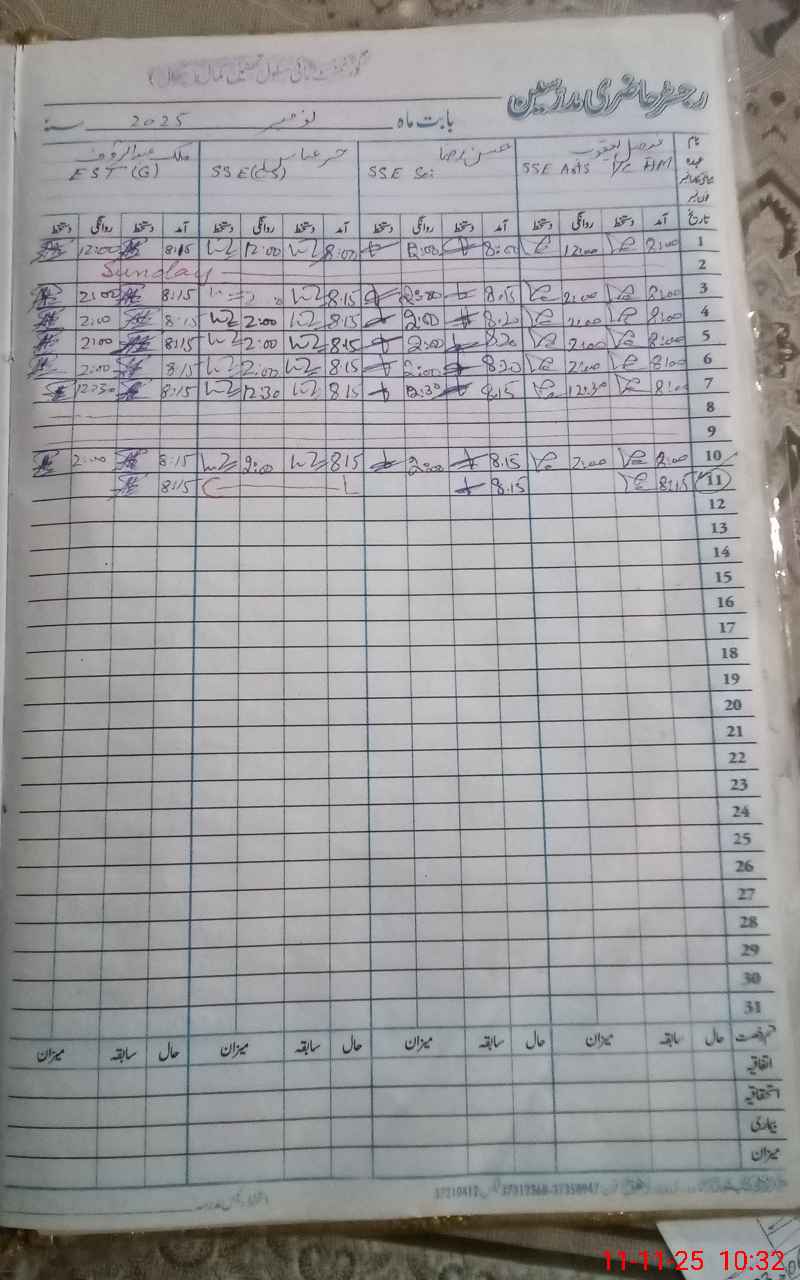 رجسٹر حاضری مدرسین
بابت ماہ نومبر 2025 سنہ
نام فیصل یعقوب حسن رضا خضر عباس ملک عبدالرؤف
عہدہ SSE Arts I/C HM SSE Sci SSE (CS) EST (G)
تاریخ آمد دستخط روانگی دستخط آمد دستخط روانگی دستخط آمد دستخط روانگی دستخط آمد دستخط روانگی دستخط
1 8:00 12:00 8:00 12:00 8:00 12:00 8:15 12:00
2 Sunday
3 8:00 2:00 8.15 2:00 8.15 8:15 2:00
4 8:00 2:00 8.20 2:00 8.15 2:00 8:15 2:00
5 8:00 2:00 8.20 2:00 8.15 2:00 8:15 2:00
6 8:00 2:00 8.20 2:00 8.15 2:00 8:15 2:00
7 8:00 12:30 8.15 12:30 8.15 12:30 8:15 12:30
8
9
10 2:00 8.15 2:00 8.15 2:00 8:15 2:00
11 8:15 8.15 C L 8:15
12
13
14
15
16
17
18
19
20
21
22
23
24
25
26
27
28
29
30
31
قسم رخصت حال سابقہ میزان حال سابقہ میزان حال سابقہ میزان حال سابقہ میزان
اتفاقیہ
استحقاقیہ
بیماری
میزان
11-11-25 10:32